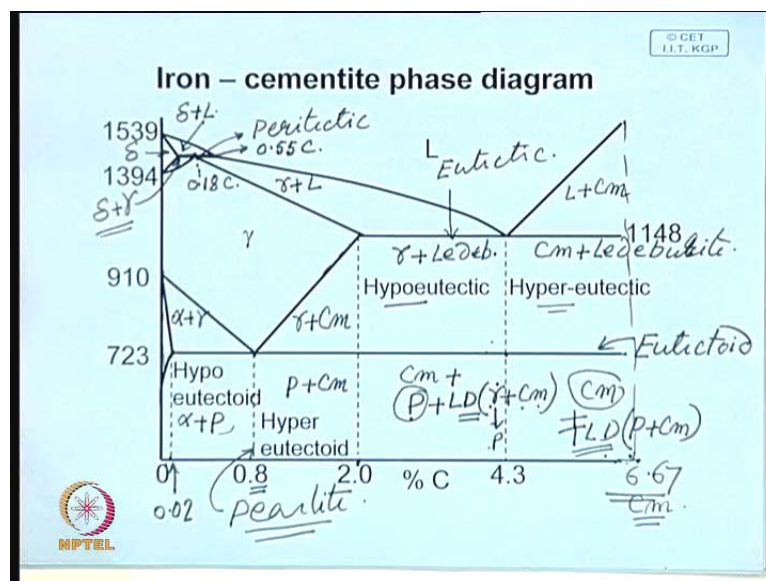 © CET
I.I.T. KGP
Iron – cementite phase diagram
δ+L
1539
Peritectic
δ
0.55 C.
1394
0.18 C.
γ+L
L
Eutectic.
L+Cm
δ+γ
1148
γ
γ+Ledeb.
Cm+Ledeburite.
910
Hypoeutectic
Hyper-eutectic
α+γ
γ+Cm
Eutectoid
723
Hypo
eutectoid
α+P
P+Cm
Hyper
eutectoid
Cm +
P+LD(γ+Cm)
P
Cm
+LD(P+Cm)
0
0.8
2.0
% C
4.3
6.67
Cm
0.02
pearlite.
NPTEL